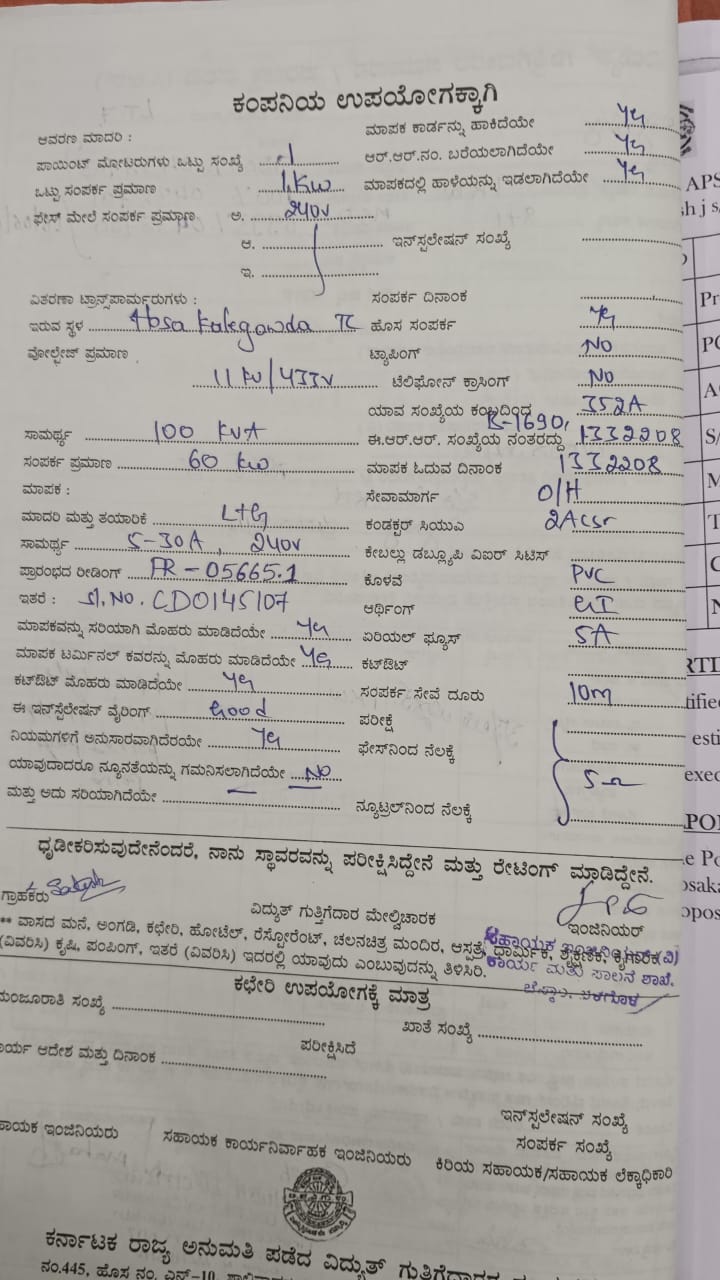 ಕಂಪನಿಯ ಉಪಯೋಗಕ್ಕಾಗಿ
ಆವರಣ ಮಾದರಿ : ಮಾಪಕ ಕಾರ್ಡನ್ನು ಹಾಕಿದೆಯೇ Yes
ಪಾಯಿಂಟ್ ಮೋಟರುಗಳು ಒಟ್ಟು ಸಂಖ್ಯೆ 1 ಆರ್.ಆರ್.ನಂ. ಬರೆಯಲಾಗಿದೆಯೇ Yes
ಒಟ್ಟು ಸಂಪರ್ಕ ಪ್ರಮಾಣ 1 Kw ಮಾಪಕದಲ್ಲಿ ಹಾಳೆಯನ್ನು ಇಡಲಾಗಿದೆಯೇ Yes
ಫೇಸ್ ಮೇಲೆ ಸಂಪರ್ಕ ಪ್ರಮಾಣ ಅ. 240V
ಆ. ಇನ್‌ಸ್ಪಲೇಷನ್ ಸಂಖ್ಯೆ
ಇ.
ವಿತರಣಾ ಟ್ರಾನ್ಸ್‌ಪಾರ್ಮರುಗಳು : ಸಂಪರ್ಕ ದಿನಾಂಕ
ಇರುವ ಸ್ಥಳ TC ಹೊಸ ಸಂಪರ್ಕ Yes
ವೋಲ್ಟೇಜ್ ಪ್ರಮಾಣ ಟ್ಯಾಪಿಂಗ್ NO
11 KV/433V ಟೆಲಿಫೋನ್ ಕ್ರಾಸಿಂಗ್ NO
ಯಾವ ಸಂಖ್ಯೆಯ ಕಂಬದಿಂದ 352A
ಸಾಮರ್ಥ್ಯ 100 KVA ಈ.ಆರ್.ಆರ್. ಸಂಖ್ಯೆಯ ನಂತರದ್ದು K-1690, 1332208
ಸಂಪರ್ಕ ಪ್ರಮಾಣ 60 Kw ಮಾಪಕ ಓದುವ ದಿನಾಂಕ 1332208
ಮಾಪಕ : ಸೇವಾಮಾರ್ಗ O/H
ಮಾದರಿ ಮತ್ತು ತಯಾರಿಕೆ L+G ಕಂಡಕ್ಟರ್ ಸಿಯುಎ 2Acsr
ಸಾಮರ್ಥ್ಯ 5-30A, 240V ಕೇಬಲ್ಲು ಡಬ್ಲ್ಯೂಪಿ ವಿಐರ್ ಸಿಟಿಸ್
ಪ್ರಾರಂಭದ ರೀಡಿಂಗ್ FR-05665.1 ಕೊಳವೆ PVC
ಇತರೆ : Sl.NO. CD0145107 ಆರ್ಥಿಂಗ್ GI
ಮಾಪಕವನ್ನು ಸರಿಯಾಗಿ ಮೊಹರು ಮಾಡಿದೆಯೇ Yes ಏರಿಯಲ್ ಫ್ಯೂಸ್ 5A
ಮಾಪಕ ಟರ್ಮಿನಲ್ ಕವರನ್ನು ಮೊಹರು ಮಾಡಿದೆಯೇ Yes ಕಟ್‌ಔಟ್
ಕಟ್‌ಔಟ್ ಮೊಹರು ಮಾಡಿದೆಯೇ Yes ಸಂಪರ್ಕ ಸೇವೆ ದೂರು 10m
ಈ ಇನ್‌ಸ್ಪೆಲೇಷನ್ ವೈರಿಂಗ್ Good ಪರೀಕ್ಷೆ
ನಿಯಮಗಳಿಗೆ ಅನುಸಾರವಾಗಿದೆರಯೇ Yes ಫೇಸ್‌ನಿಂದ ನೆಲಕ್ಕೆ
ಯಾವುದಾದರೂ ನ್ಯೂನತೆಯನ್ನು ಗಮನಿಸಲಾಗಿದೆಯೇ NO 5Ω
ಮತ್ತು ಅದು ಸರಿಯಾಗಿದೆಯೇ — ನ್ಯೂಟ್ರಲ್‌ನಿಂದ ನೆಲಕ್ಕೆ
ಧೃಡೀಕರಿಸುವುದೇನೆಂದರೆ, ನಾನು ಸ್ಥಾವರವನ್ನು ಪರೀಕ್ಷಿಸಿದ್ದೇನೆ ಮತ್ತು ರೇಟಿಂಗ್ ಮಾಡಿದ್ದೇನೆ.
ಗ್ರಾಹಕರು ವಿದ್ಯುತ್ ಗುತ್ತಿಗೆದಾರ ಮೇಲ್ವಿಚಾರಕ ಇಂಜಿನಿಯರ್
** ವಾಸದ ಮನೆ, ಅಂಗಡಿ, ಕಛೇರಿ, ಹೋಟೆಲ್, ರೆಸ್ಟೋರೆಂಟ್, ಚಲನಚಿತ್ರ ಮಂದಿರ, ಆಸ್ಪತ್ರೆ, ಧಾರ್ಮಿಕ, ಶೈಕ್ಷಣಿಕ, ಕೈಗಾರಿಕೆ
(ವಿವರಿಸಿ) ಕೃಷಿ, ಪಂಪಿಂಗ್, ಇತರೆ (ವಿವರಿಸಿ) ಇದರಲ್ಲಿ ಯಾವುದು ಎಂಬುವುದನ್ನು ತಿಳಿಸಿರಿ.
ಕಾರ್ಯ ಮತ್ತು ಪಾಲನೆ ಶಾಖೆ.
ಕಛೇರಿ ಉಪಯೋಗಕ್ಕೆ ಮಾತ್ರ
ಮಂಜೂರಾತಿ ಸಂಖ್ಯೆ ಖಾತೆ ಸಂಖ್ಯೆ
ಾರ್ಯ ಆದೇಶ ಮತ್ತು ದಿನಾಂಕ ಪರೀಕ್ಷಿಸಿದೆ
ಇನ್‌ಸ್ಪಲೇಷನ್ ಸಂಖ್ಯೆ
ಸಂಪರ್ಕ ಸಂಖ್ಯೆ
ಹಾಯಕ ಇಂಜಿನಿಯರು ಸಹಾಯಕ ಕಾರ್ಯನಿರ್ವಾಹಕ ಇಂಜಿನಿಯರು ಕಿರಿಯ ಸಹಾಯಕ/ಸಹಾಯಕ ಲೆಕ್ಕಾಧಿಕಾರಿ
ಕರ್ನಾಟಕ ರಾಜ್ಯ ಅನುಮತಿ ಪಡೆದ ವಿದ್ಯುತ್ ಗುತ್ತಿಗೆದಾರರ
ನಂ.445, ಹೊಸ ನಂ. ಎನ್-10,